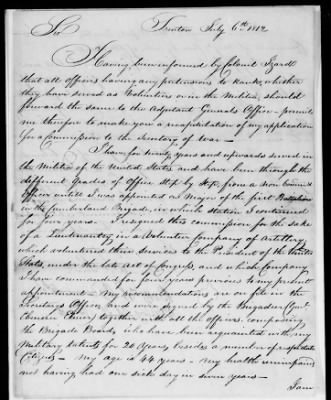 Trenton July 6th 1812
Sir
Having been informed by Colonel Izard
that all officers having any pretensions to Rank, whether
they have served as Volunteers or in the Militia, should
forward the same to the Adjutant Generals Office – permit
me therefore to make you a recapitulation of my application
for a Commission to the Secretary of War –
I have for twenty years and upwards served in
the Militia of the United States and have been through the
different Grades of Office step by step, from a non Commd
Officer untill I was appointed as Major of the first Battalion
in the Cumberland Brigade, in which station I continued
for four years. I resigned this commission for the sake
of a Lieutenantcy in a Volunteer Company of Artillery
which volunteered their services to the President of the United
States, under the late act of Congress, and which Company
I have commanded for four years previous to my present
appointment – My recommendations are on file in the
Secretarys Office, and were signed by the Brigadier Genl
Ebenezer Elmer, together with all the officers composing
the Brigade Board, who have been acquainted with my
Military talents for 20 Years, besides a number of respectable
Citizens – My age is 44 years – My health unimpaired
not having had one sick day in seven years –
I am